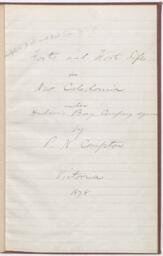 Forts and Fort Life
in
New Caledonia
under
Hudson's Bay Company regime
by
P. N. Compton
Victoria
1878